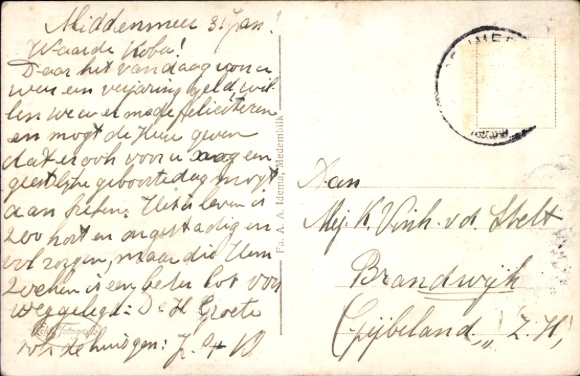 Middenmeer 3 Jan!
Waarde Koba!
Daar het vandaag voor u
weer een verjaring geld, wil
len we u er mede feliciteren
en mogt de Heer geven
dat er ook voor u nog een
geestelijke geboortedag mogt
aan breken. Het is leven is
zoo kort en ongestadig en
vol zorgen, maar die Hem
zoeken is een beter lot voor
weggelegd: De H Groete
van de huisgen:
Fa. A. A. Idema, Medemblik
Aan
Mej. K. Vink. v.d. Stelt
Brandwijk
Gijbeland „Z. H„